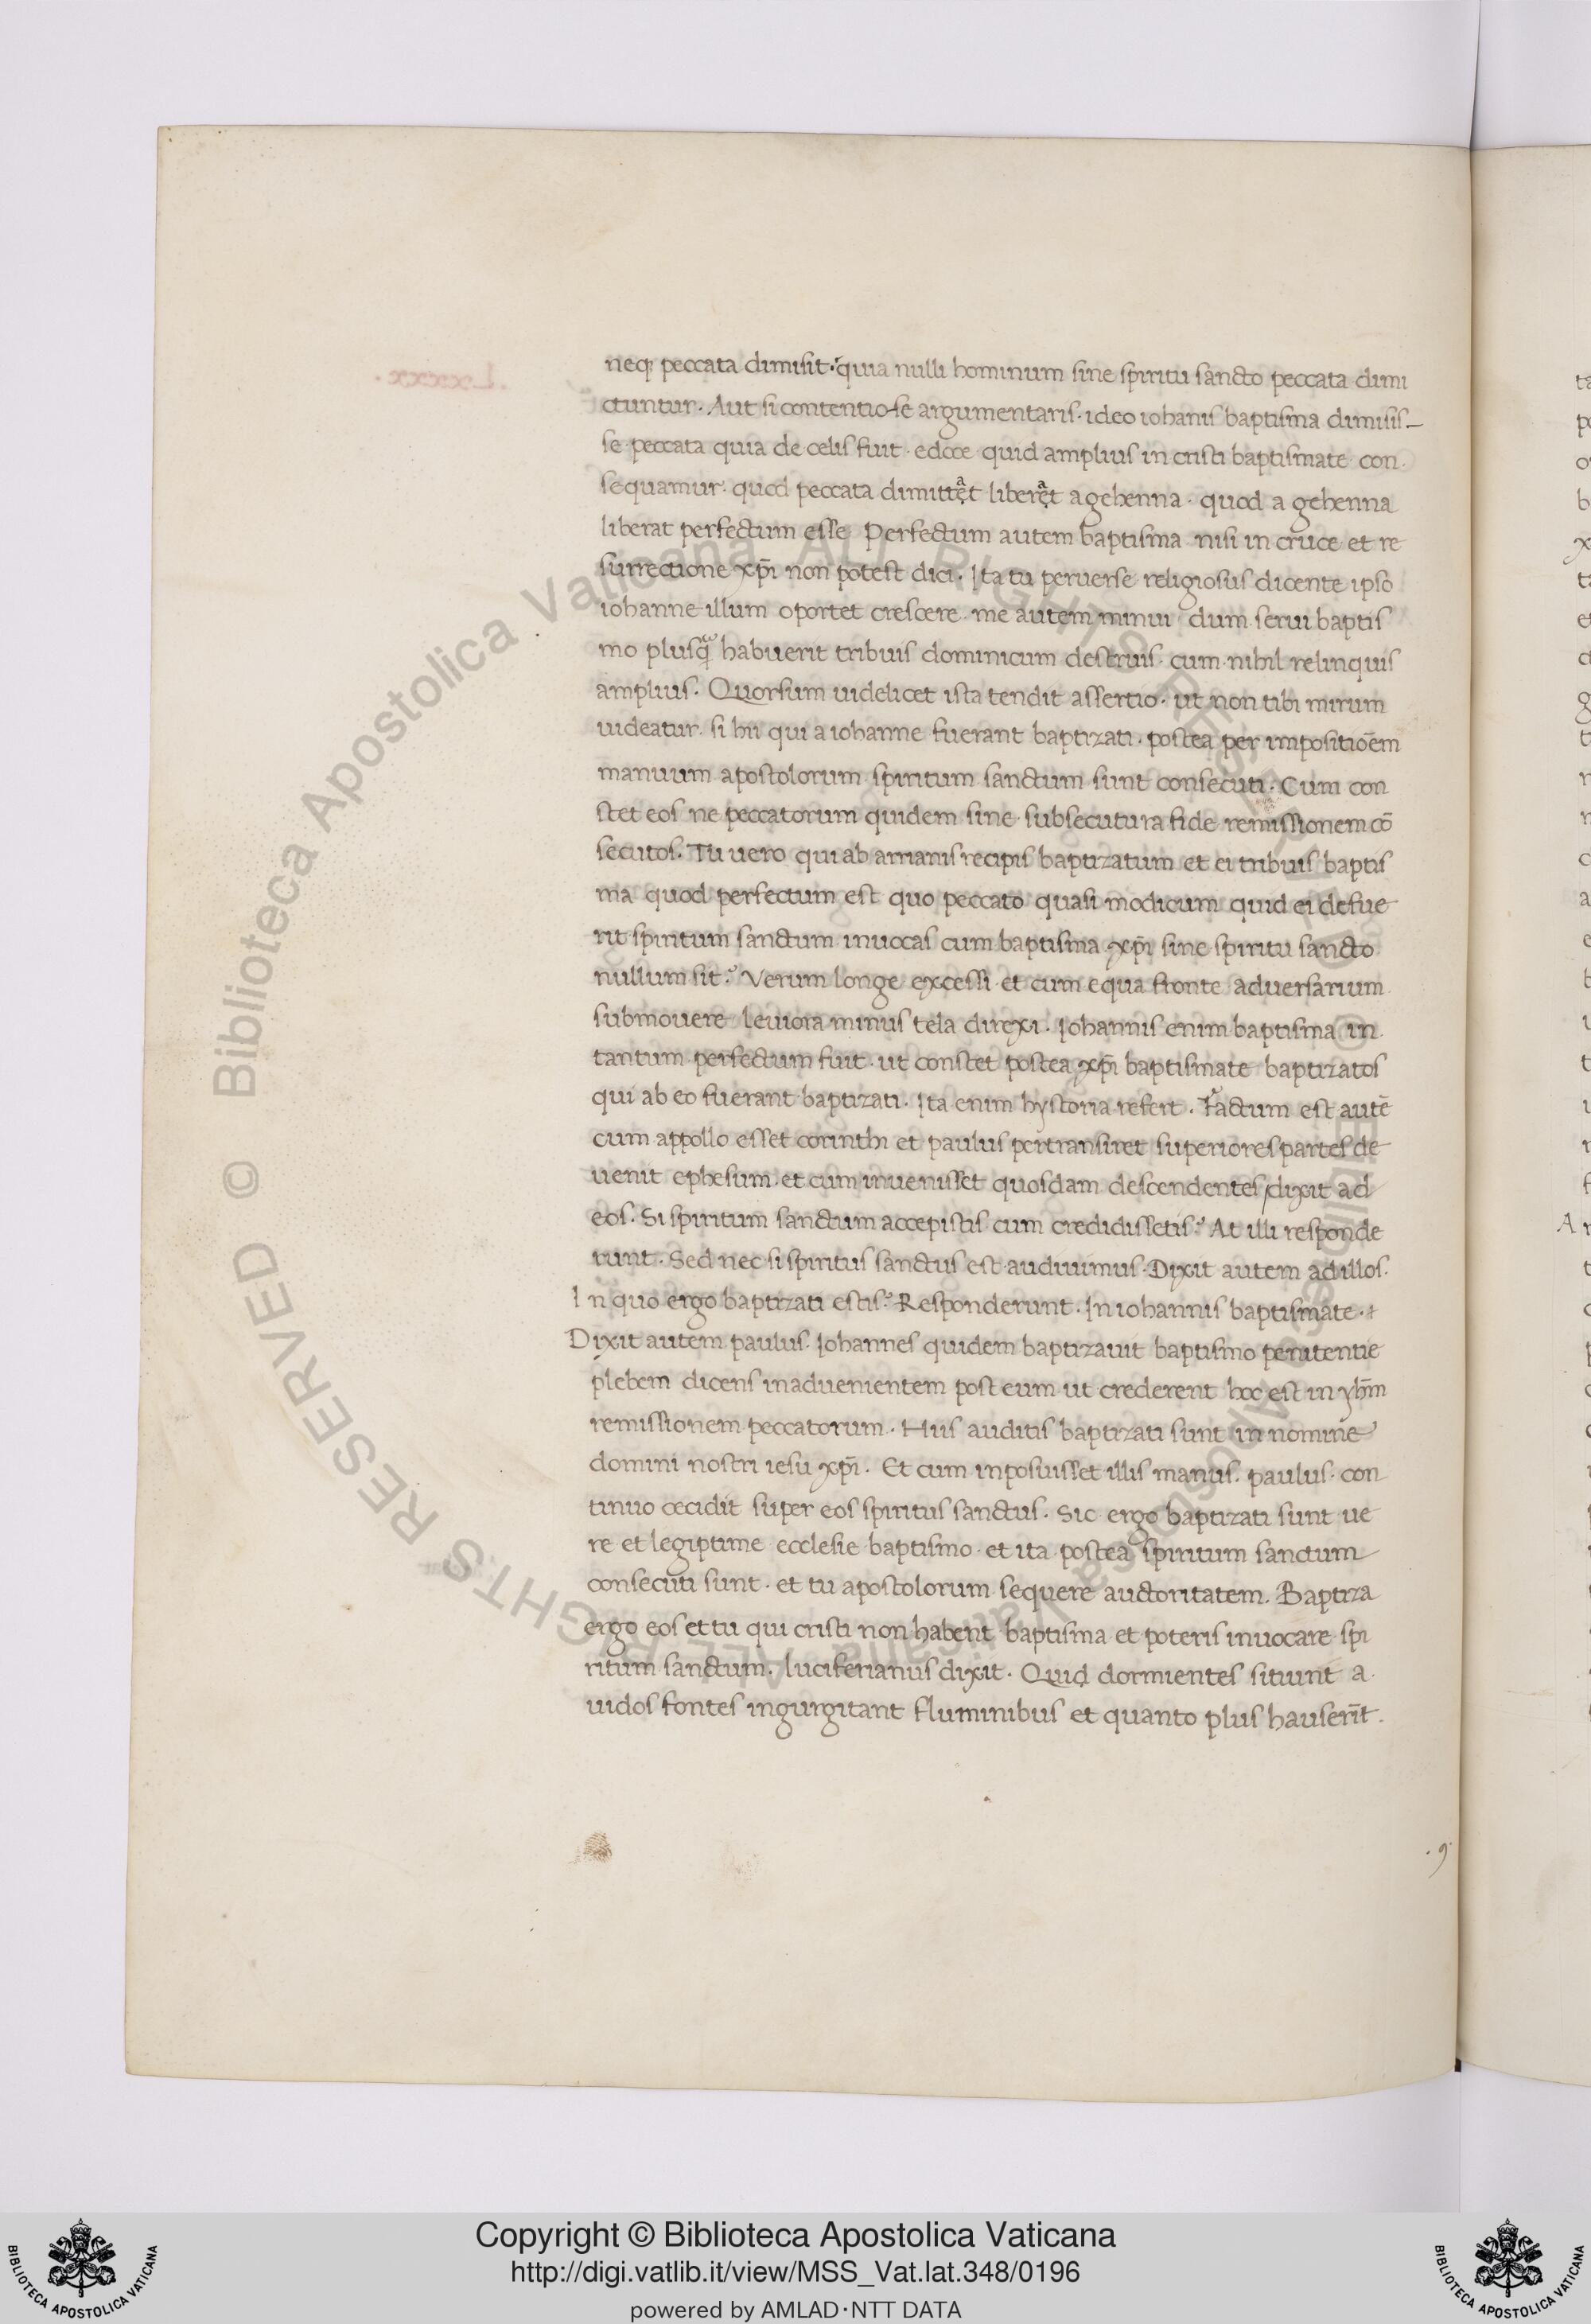 neq; peccata dimisit. quia nulli hominum sine spiritu sancto peccata dimi
ctuntur. Aut si contentiose argumentaris. ideo iohanis baptisma dimisis–
se peccata quia de celis fuit. edoce quid amplius in cristi baptismate con.
sequamur. quod peccata dimittat liberat a gehenna. quod a gehenna
liberat perfectum esse. Perfectum autem baptisma nisi in cruce et re
surrectione xp̄i non potest dici. Ita tu peruerse religiosus dicente ipso
iohanne illum oportet crescere. me autem minui dum serui baptis
mo plusq̄ habuerit tribuis dominicum destruis. cum nihil relinquis
amplius. Quorsum uidelicet ista tendit assertio. ut non tibi mirum
uideatur. si hii qui a iohanne fuerant baptizati. postea per impositioēm
manuum apostolorum spiritum sanctum sunt consecuti. Cum con
stet eos ne peccatorum quidem sine subsecutura fide remissionem cō
secutos. Tu uero qui ab arrianis recipis baptizatum et ei tribuis baptis
ma quod perfectum est quo peccato quasi modicum quid ei defue
rit spiritum sanctum inuocas cum baptisma xp̄i sine spiritu sancto
nullum sit? Verum longe excessi et cum equa fronte aduersarium
submouere leuiora minus tela direxi. Iohannis enim baptisma in
tantum perfectum fuit. ut constet postea xp̄i baptismate baptizatos
qui ab eo fuerant baptizati. Ita enim hystoria refert. Factum est autē
cum appollo esset corinthi et paulus pertransiret superiores partes de
uenit ephesum. et cum inuenisset quosdam descendentes dixit ad
eos. Si spiritum sanctum accepistis cum credidissetis? At illi responde
runt. Sed nec si spiritus sanctus est audiuimus. Dixit autem ad illos.
In quo ergo baptizati estis? Responderunt. In iohannis baptismate.
Dixit autem paulus. Iohannes quidem baptizauit baptismo penitentie
plebem dicens inaduenientem post eum ut crederent hoc est in yhm̄
remissionem peccatorum. Hiis auditis baptizati sunt in nomine
domini nostri iesu xp̄i. Et cum inposuisset illis manus. paulus. con
tinuo cecidit super eos spiritus sanctus. Sic ergo baptizati sunt ue
re et legiptime ecclesie baptismo. et ita postea spiritum sanctum
consecuti sunt. et tu apostolorum sequere auctoritatem. Baptiza
ergo eos et tu qui cristi non habent baptisma et poteris inuocare spi
ritum sanctum. luciferianus dixit. Quid dormientes sitiunt a
uidos fontes ingurgitant fluminibus et quanto plus hauserīt.
. 9 .
© Biblioteca Apostolica Vaticana ALL RIGHTS RESERVED
Copyright © Biblioteca Apostolica Vaticana
http://digi.vatlib.it/view/MSS_Vat.lat.348/0196
powered by AMLAD·NTT DATA
BIBLIOTECA APOSTOLICA VATICANA
BIBLIOTECA APOSTOLICA VATICANA